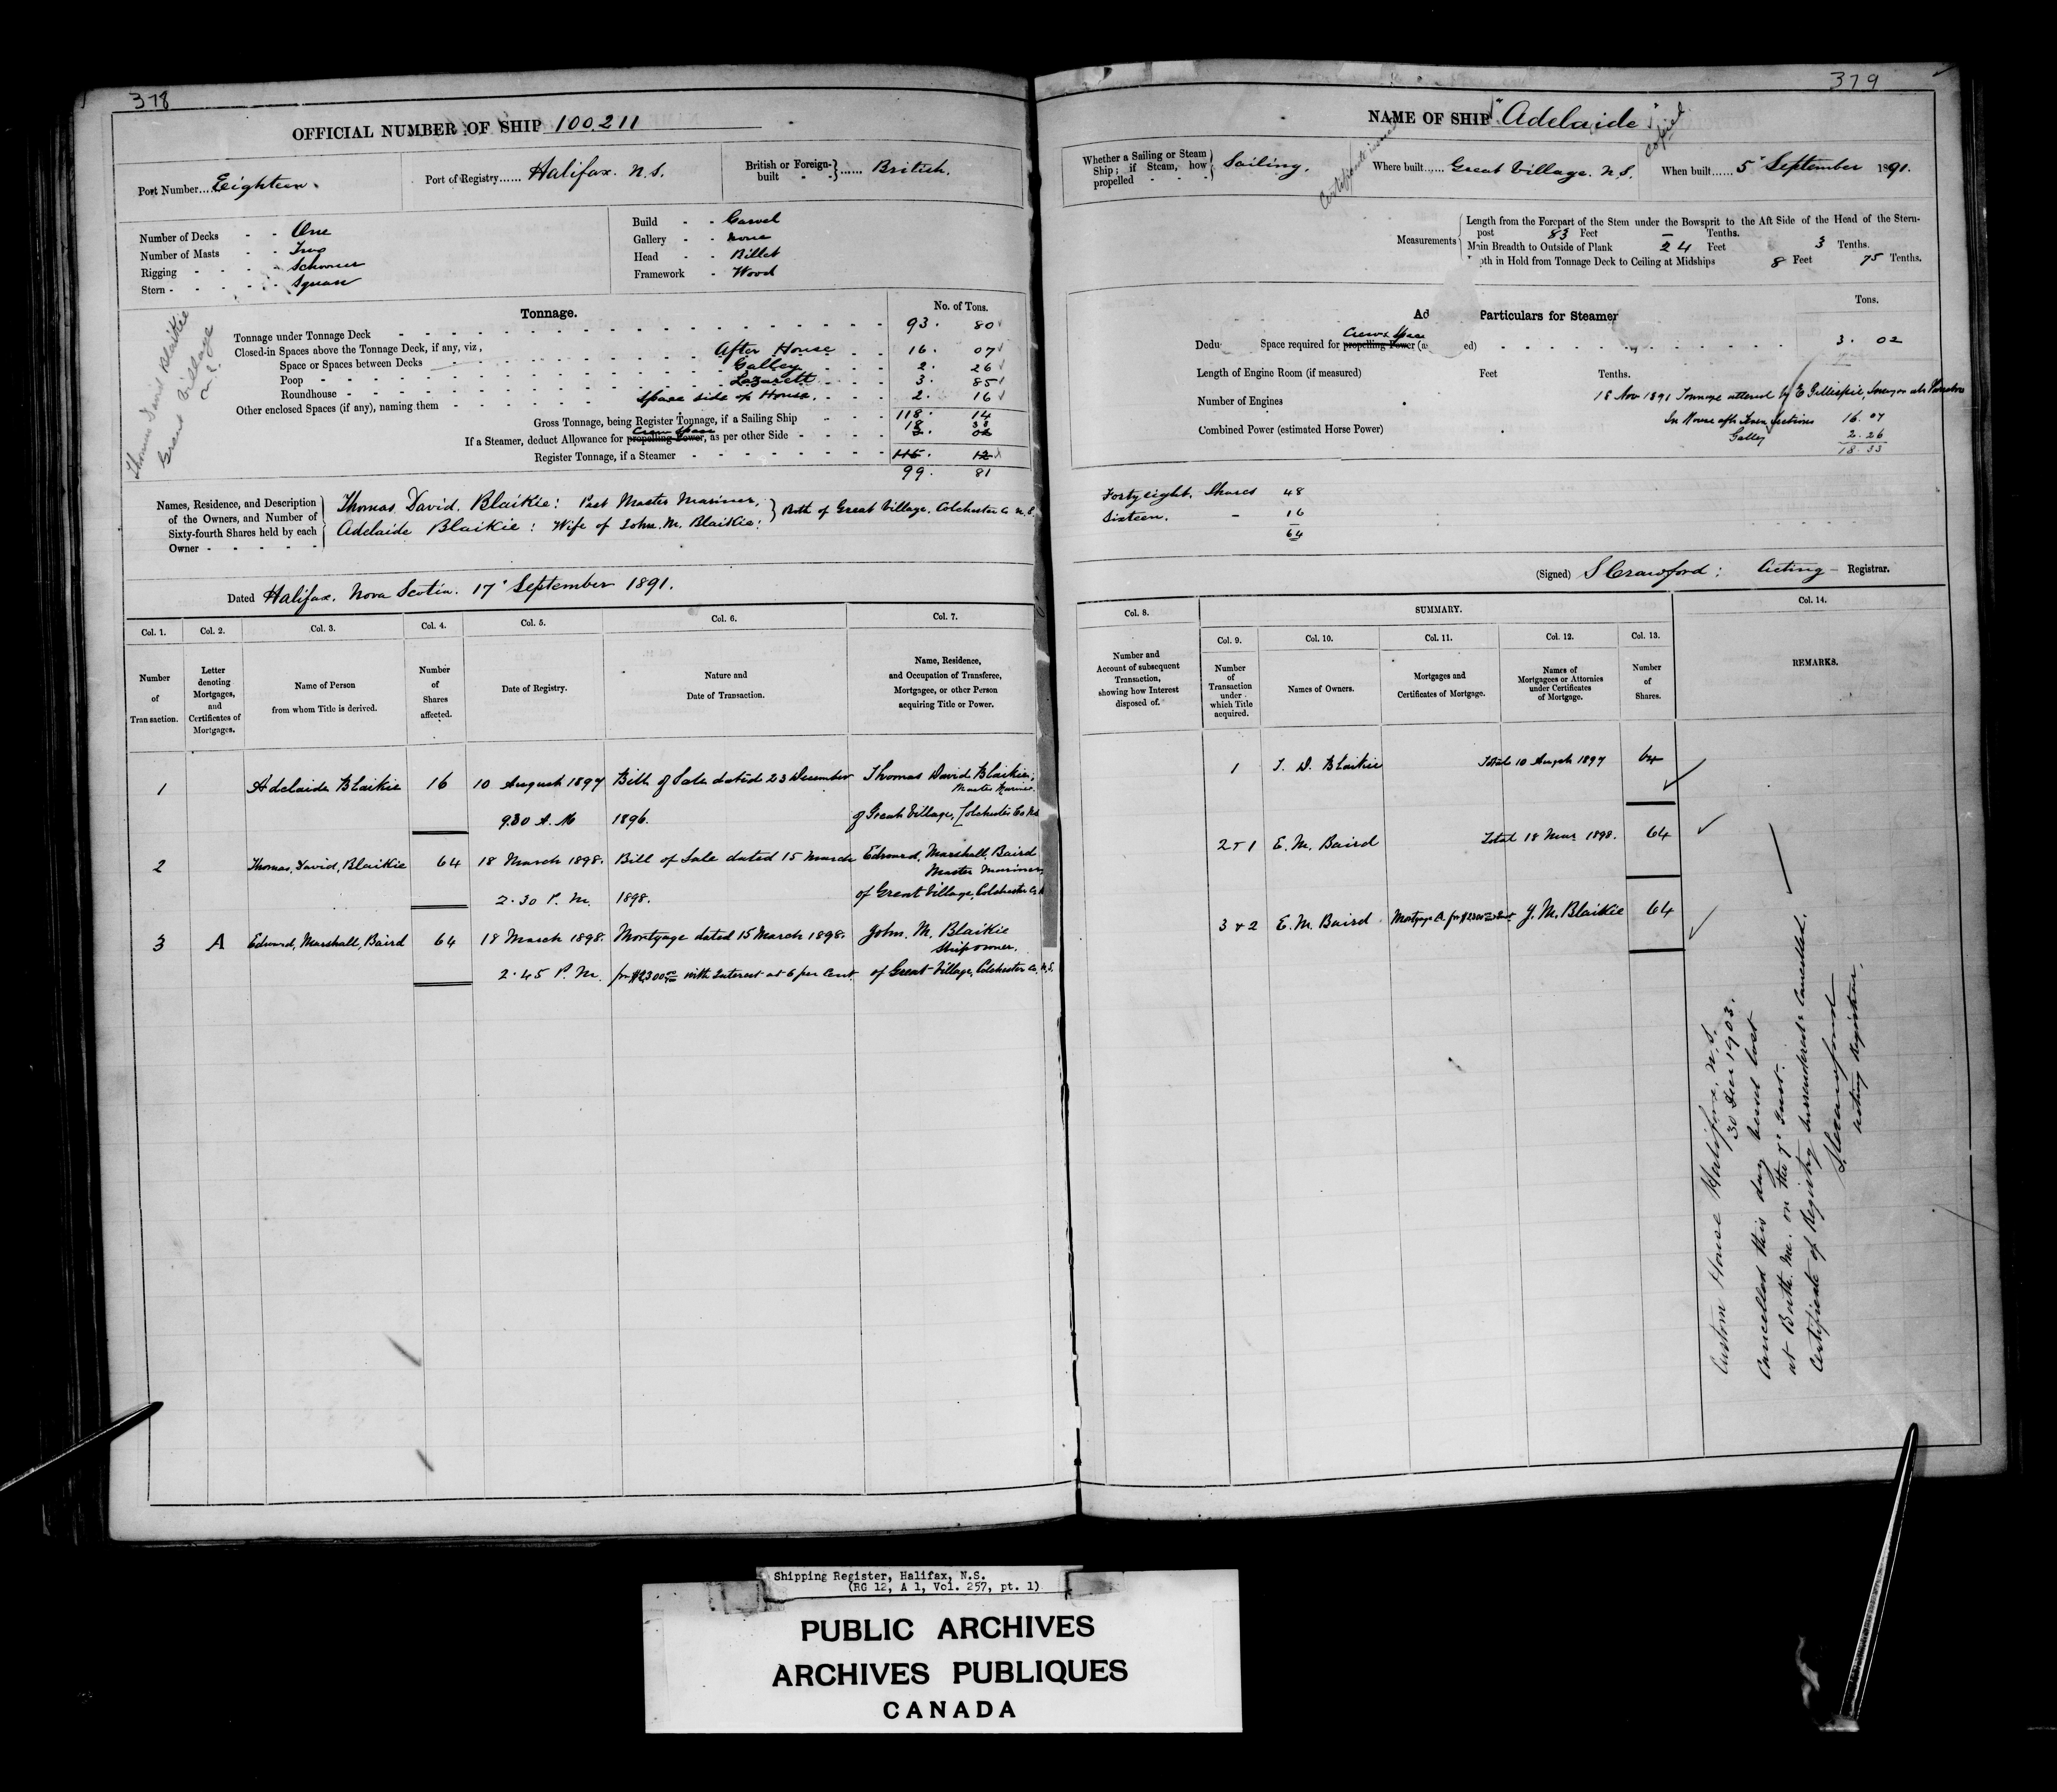 378
OFFICIAL NUMBER OF SHIP 100211
Port Number....Eighteen.
Port of Registry...... Halifax. N.S.
British or Foreign-built - - }...... British.
Number of Decks - - One
Number of Masts - - Two
Rigging - - - - Schooner
Stern - - - - - Square
Build - - Carvel
Gallery - - None
Head - - Billet
Framework - Wood
Thomas David Blaikie
Great Village
N.S.
Tonnage.
No. of Tons.
Tonnage under Tonnage Deck 93. 80
Closed-in Spaces above the Tonnage Deck, if any, viz,
Space or Spaces between Decks After House 16. 07
Poop Galley 2. 26
Roundhouse Lazarett 3. 85
Other enclosed Spaces (if any), naming them Space side of House. 2. 16
Gross Tonnage, being Register Tonnage, if a Sailing Ship 118. 14
18 33
Crew Space
If a Steamer, deduct Allowance for propelling Power, as per other Side - - - - 3. 02
Register Tonnage, if a Steamer 115. 12
99. 81
Names, Residence, and Description of the Owners, and Number of Sixty-fourth Shares held by each Owner - - - - -
Thomas. David. Blaikie: Part Master Mariner, } Both of Great Village, Colchester Co N.S.
Adelaide Blaikie: Wife of John. M. Blaikie:
Dated Halifax. Nova Scotia. 17" September 1891.
Col. 1. Col. 2. Col. 3. Col. 4. Col. 5. Col. 6. Col. 7.
Number of Transaction.
Letter denoting Mortgages, and Certificates of Mortgages.
Name of Person from whom Title is derived.
Number of Shares affected.
Date of Registry.
Nature and Date of Transaction.
Name, Residence, and Occupation of Transferee, Mortgagee, or other Person acquiring Title or Power.
1 Adelaide Blaikie 16 10 August 1897 Bill of Sale dated 23 December Thomas David Blaikie;
Master Mariner.
9.30 A. M 1896. of Great Village, Colchester Co NS
2 Thomas, David, Blaikie 64 18 March 1898. Bill of Sale dated 15 March Edward, Marshall, Baird
Master Mariner
2.30 P. M. 1898. of Great Village, Colchester Co
3 A Edward, Marshall, Baird 64 18 March 1898. Mortgage dated 15 March 1898. John. M. Blaikie
Shipowner.
2.45 P. M. for $2300 with Interest at 6 per Cent. of Great Village, Colchester Co. N.S.
379
NAME OF SHIP "Adelaide"
copied
Whether a Sailing or Steam Ship; if Steam, how propelled - - - Sailing.
Where built...... Great Village. N.S.
When built...... 5" September 1891.
Measurements
Length from the Forepart of the Stem under the Bowsprit to the Aft Side of the Head of the Stern-
post 83 Feet – Tenths.
Main Breadth to Outside of Plank 24 Feet 3 Tenths.
pth in Hold from Tonnage Deck to Ceiling at Midships 8 Feet 75 Tenths.
Ad Particulars for Steamer
Tons.
Crews Space
Dedu Space required for propelling Power (a ed) 3. 02
Length of Engine Room (if measured) Feet Tenths.
18 Nov 1891 Tonnage altered by E Gillispie, Surveyor
Number of Engines
16. 07
Combined Power (estimated Horse Power)
Galley 2. 26
18. 33
Forty eight. Shares 48
Sixteen. – 16
64
(Signed) S Crawford: Acting – Registrar.
Col. 8. SUMMARY. Col. 14.
Col. 9. Col. 10. Col. 11. Col. 12. Col. 13.
Number and Account of subsequent Transaction, showing how Interest disposed of.
Number of Transaction under which Title acquired.
Names of Owners.
Mortgages and Certificates of Mortgage.
Names of Mortgagees or Attornies under Certificates of Mortgage.
Number of Shares.
REMARKS.
1 T. D. Blaikie Total 10 August 1897 64
2 & 1 E. M. Baird Total 18 Mar 1898. 64
3 & 2 E. M. Baird Mortgage A. for $2300 J. M. Blaikie 64
Custom House Halifax. N.S.
30 Decr 1903.
Cancelled this day vessel lost
at Me. on the 7" Inst.
Certificate of Registry surrendered & Cancelled.
S. Crawford
Acting Registrar.
Shipping Register, Halifax, N.S.
(RG 12, A 1, Vol. 257, pt. 1)
PUBLIC ARCHIVES
ARCHIVES PUBLIQUES
CANADA